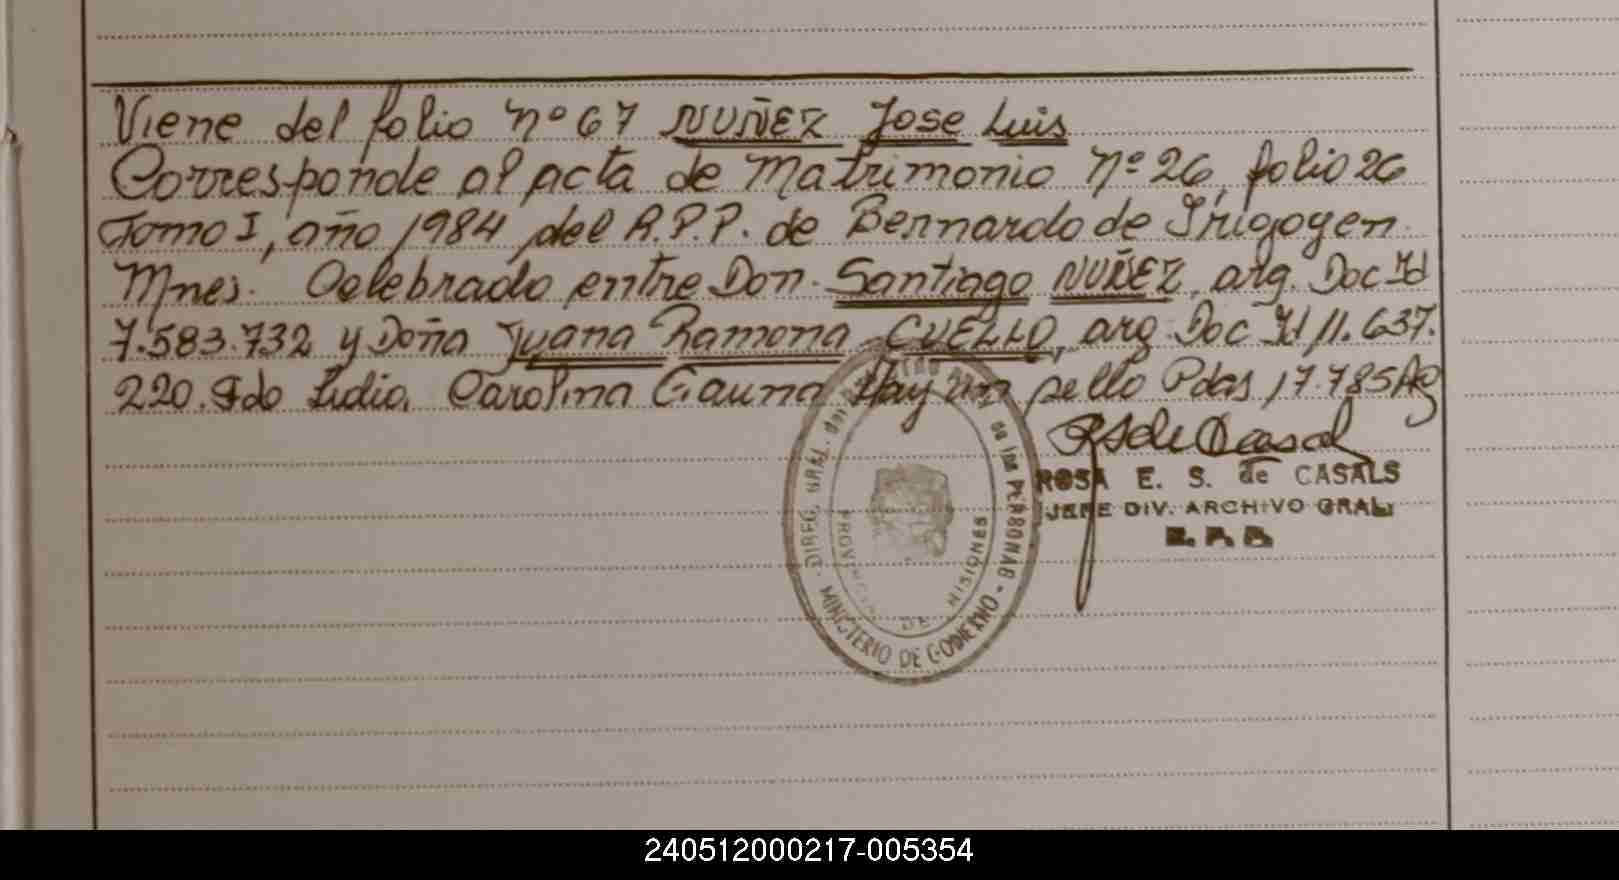 Viene del folio nº 67 NUÑEZ Jose Luis
Corresponde al acta de Matrimonio Nº 26, folio 26
Tomo I, año 1984 del R.P.P. de Bernardo de Irigoyen
Mnes. Celebrado entre Don Santiago NUÑEZ, arg. Doc Id
7.583.732 y Doña Juana Ramona CUELLO, arg. Doc Id 11.637.
220. Fdo Lidia Carolina Gauna Hay un sello Pdas, 17.785
ROSA E. S. de CASALS
JEFE DIV. ARCHIVO GRAL.
R. P. P.
DIREC. GRAL. de las PERSONAS - MINISTERIO DE GOBIERNO
PROVINCIA DE MISIONES
240512000217-005354